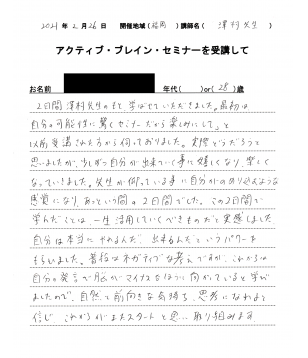 2021年 2月 26日 開催地域(福岡)講師名( 澤村先生 )
アクティブ・ブレイン・セミナーを受講して
お名前 年代( )or( 28 )歳
2日間澤村先生のもと学ばせていただきました。最初は
自分の可能性に驚くセミナーだから楽しみにして」と
以前受講された方から伺っておりました。実際どうだろうと
思いましたが、少しずつ自分が出来ていく事に嬉しくなり、楽しく
なっていきました。先生が伺っている事に自分がのめり込むような
感覚になり、あっという間の2日間でした。この2日間で
学んだことは一生活用していくべきものだと実感しました
自分は本当にやれるんだ 出来るんだというパワーを
もらいました。普段はネガティブな考えですが、これからは
自分の発言で脳がマイナスなほうに向かっていると学び
ましたので、自然と前向きな気持ち、思考になれると
信じ これからがまたスタートと思い、取り組みます